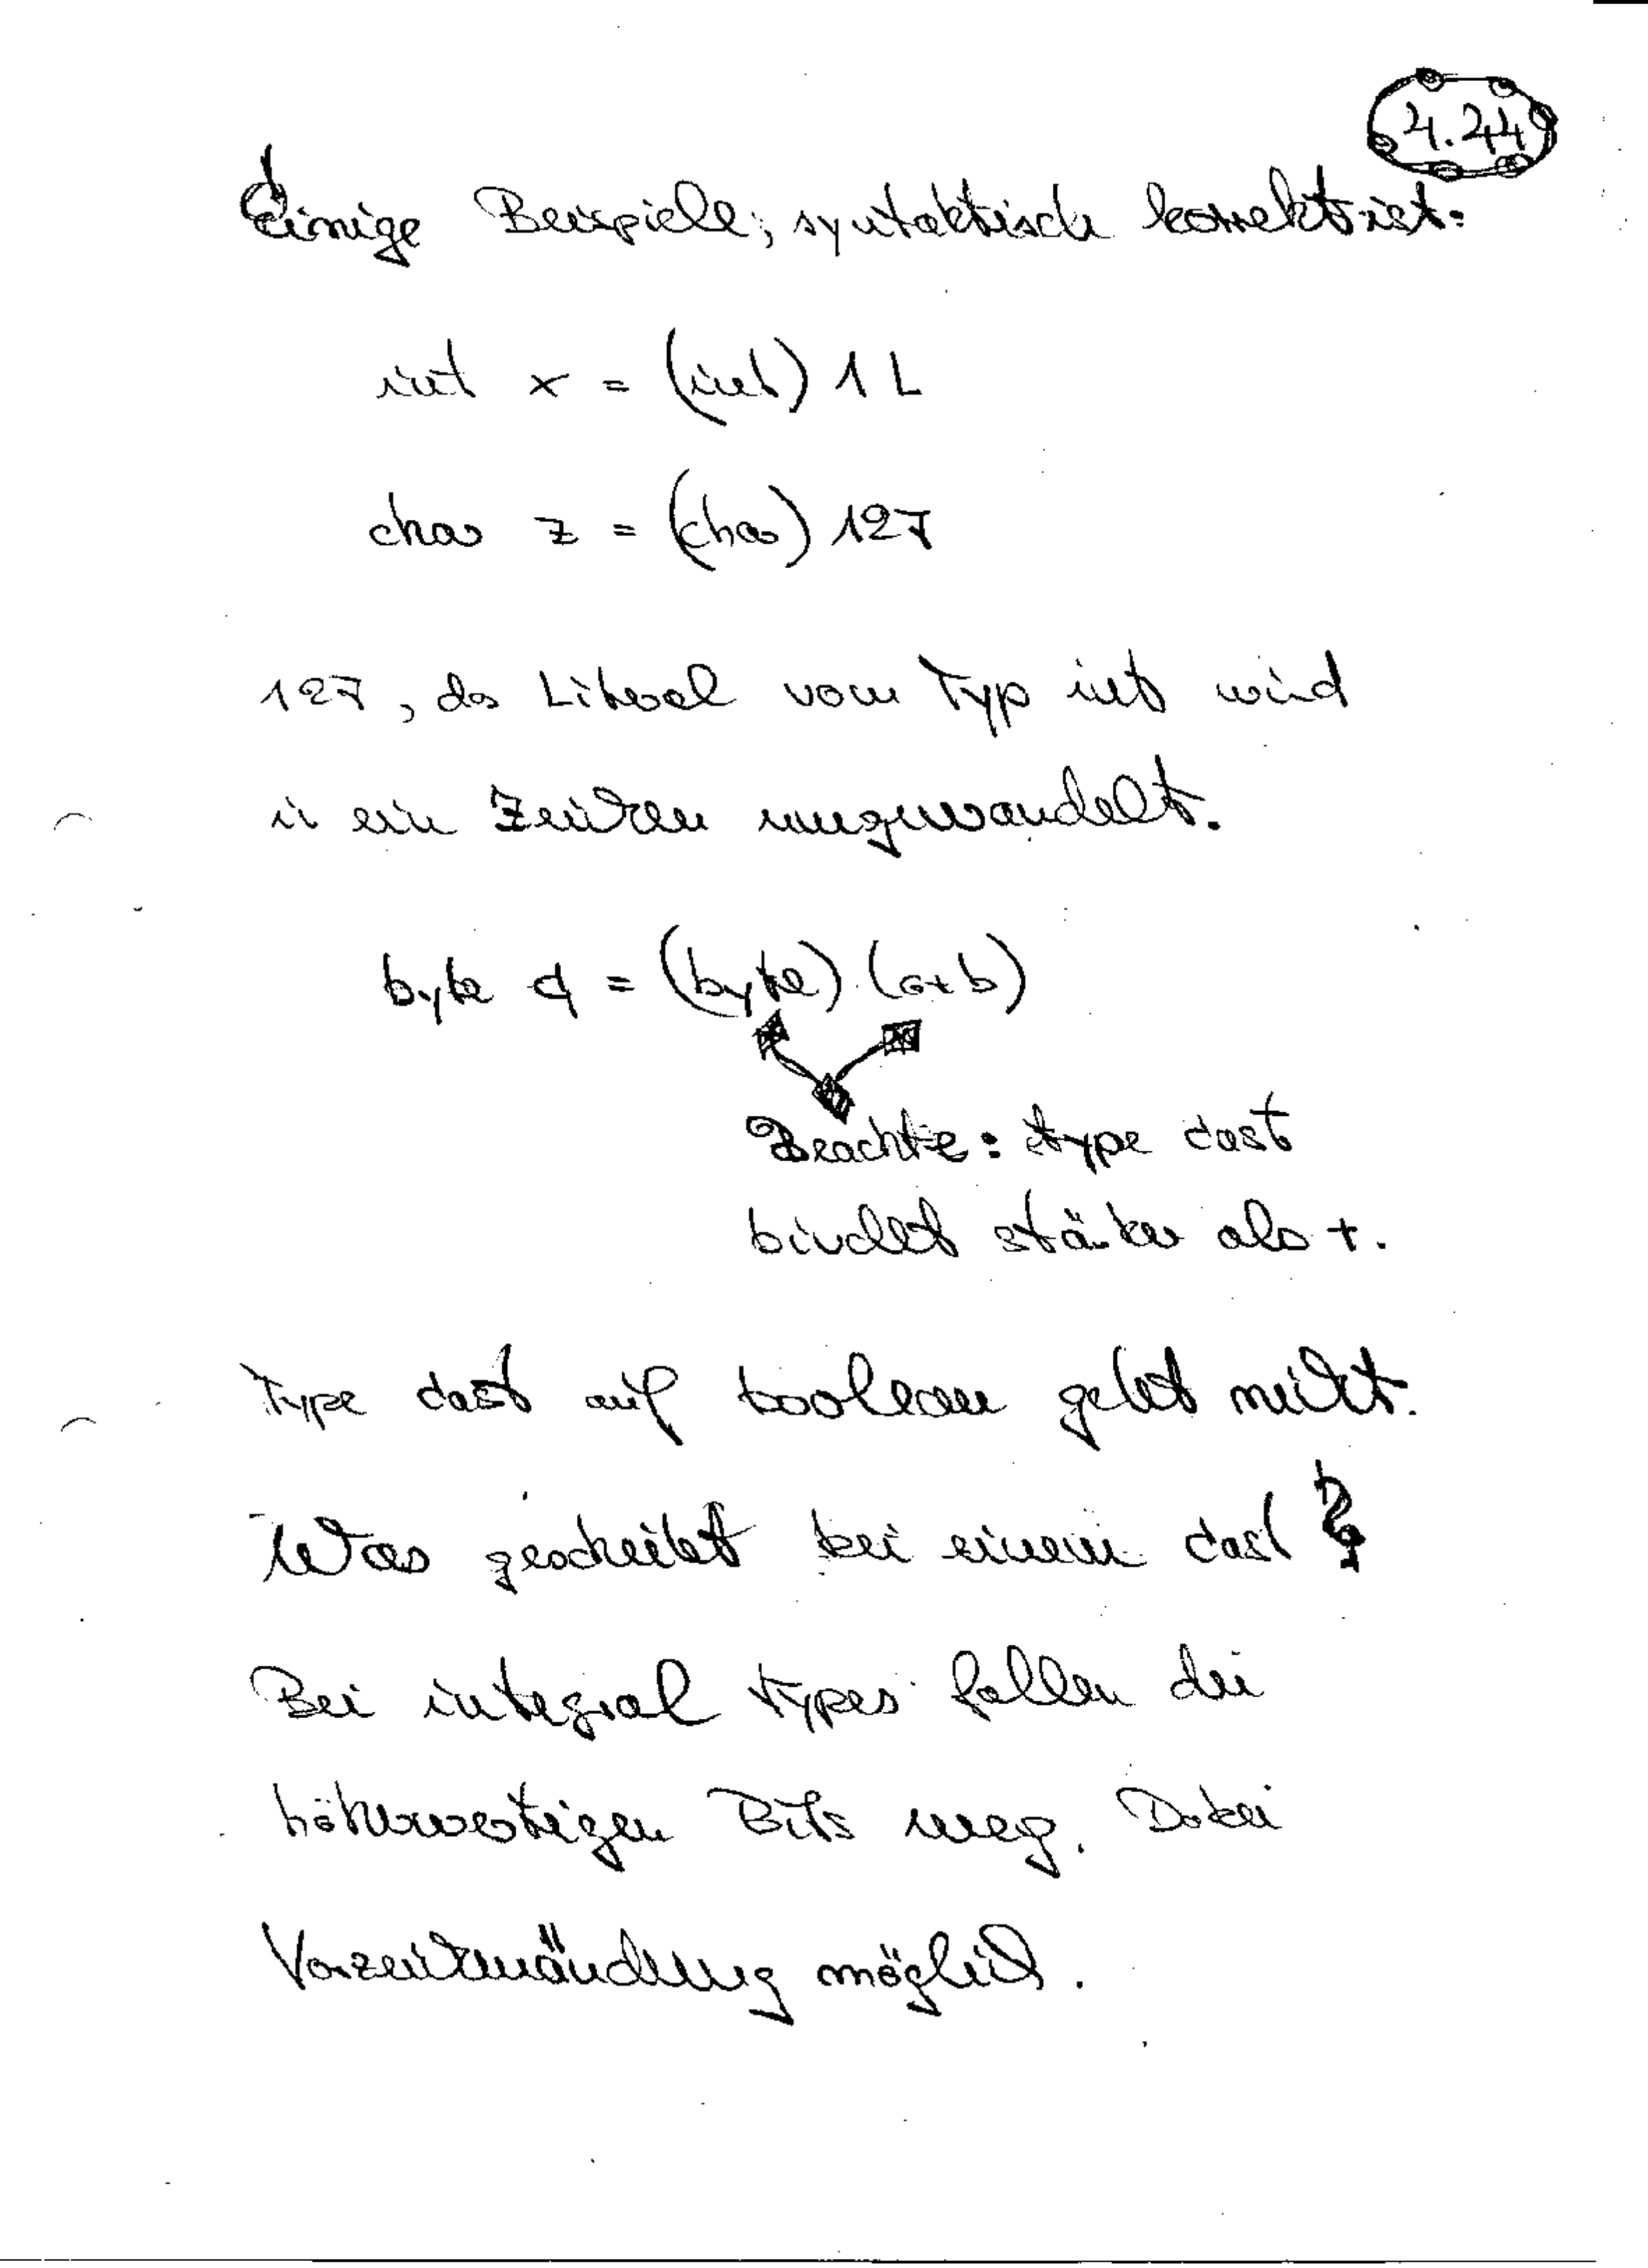 4.24
Einige Beispiele; syntaktisch korrekt ist:
int x = (int) 1 L
char z = (char) 127
127, das Literal vom Typ int wird
in ein Zeichen umgewandelt.
byte d = (byte) (a+b)
Beachte: type cast
bindet stärker als +.
Type cast auf boolean geht nicht.
Was geschieht bei einem cast?
Bei integral types fallen die
höherwertigen Bits weg. Dabei
Vorzeichenänderung möglich.